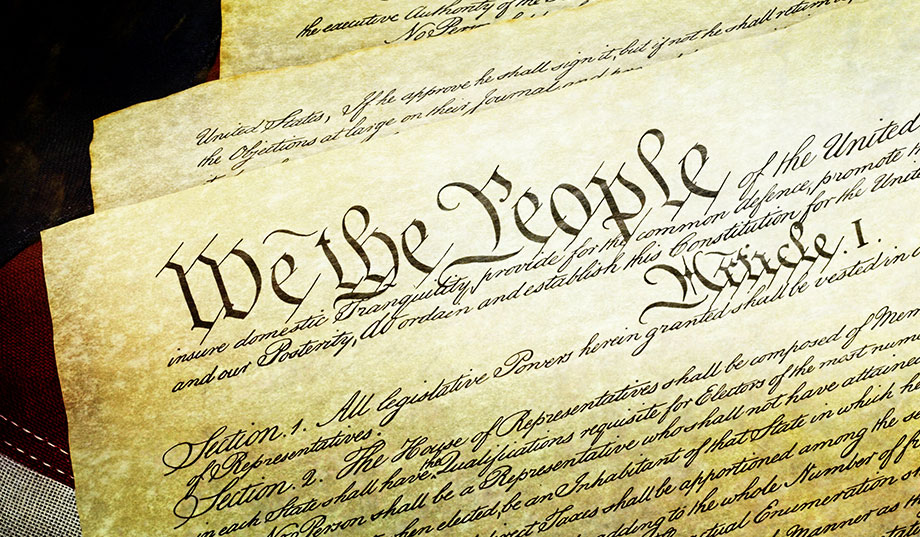 the executive Authority of the
No Person
United States, If he approve he shall sign it, but if not he shall return
the Objections at large on their Journal, and
We the People of the United
insure domestic Tranquility, provide for the common defence, promote
and our Posterity, do ordain and establish this Constitution for the United
Article. I.
Section. 1. All legislative Powers herein granted shall be vested in
of Representatives.
Section. 2. The House of Representatives shall be composed of Mem
in each State shall have the Qualifications requisite for Electors of the most nume
No Person shall be a Representative who shall not have attained
when elected, be an Inhabitant of that State in which he
direct Taxes shall be apportioned among the
adding to the whole Number of
Enumeration
Manner as